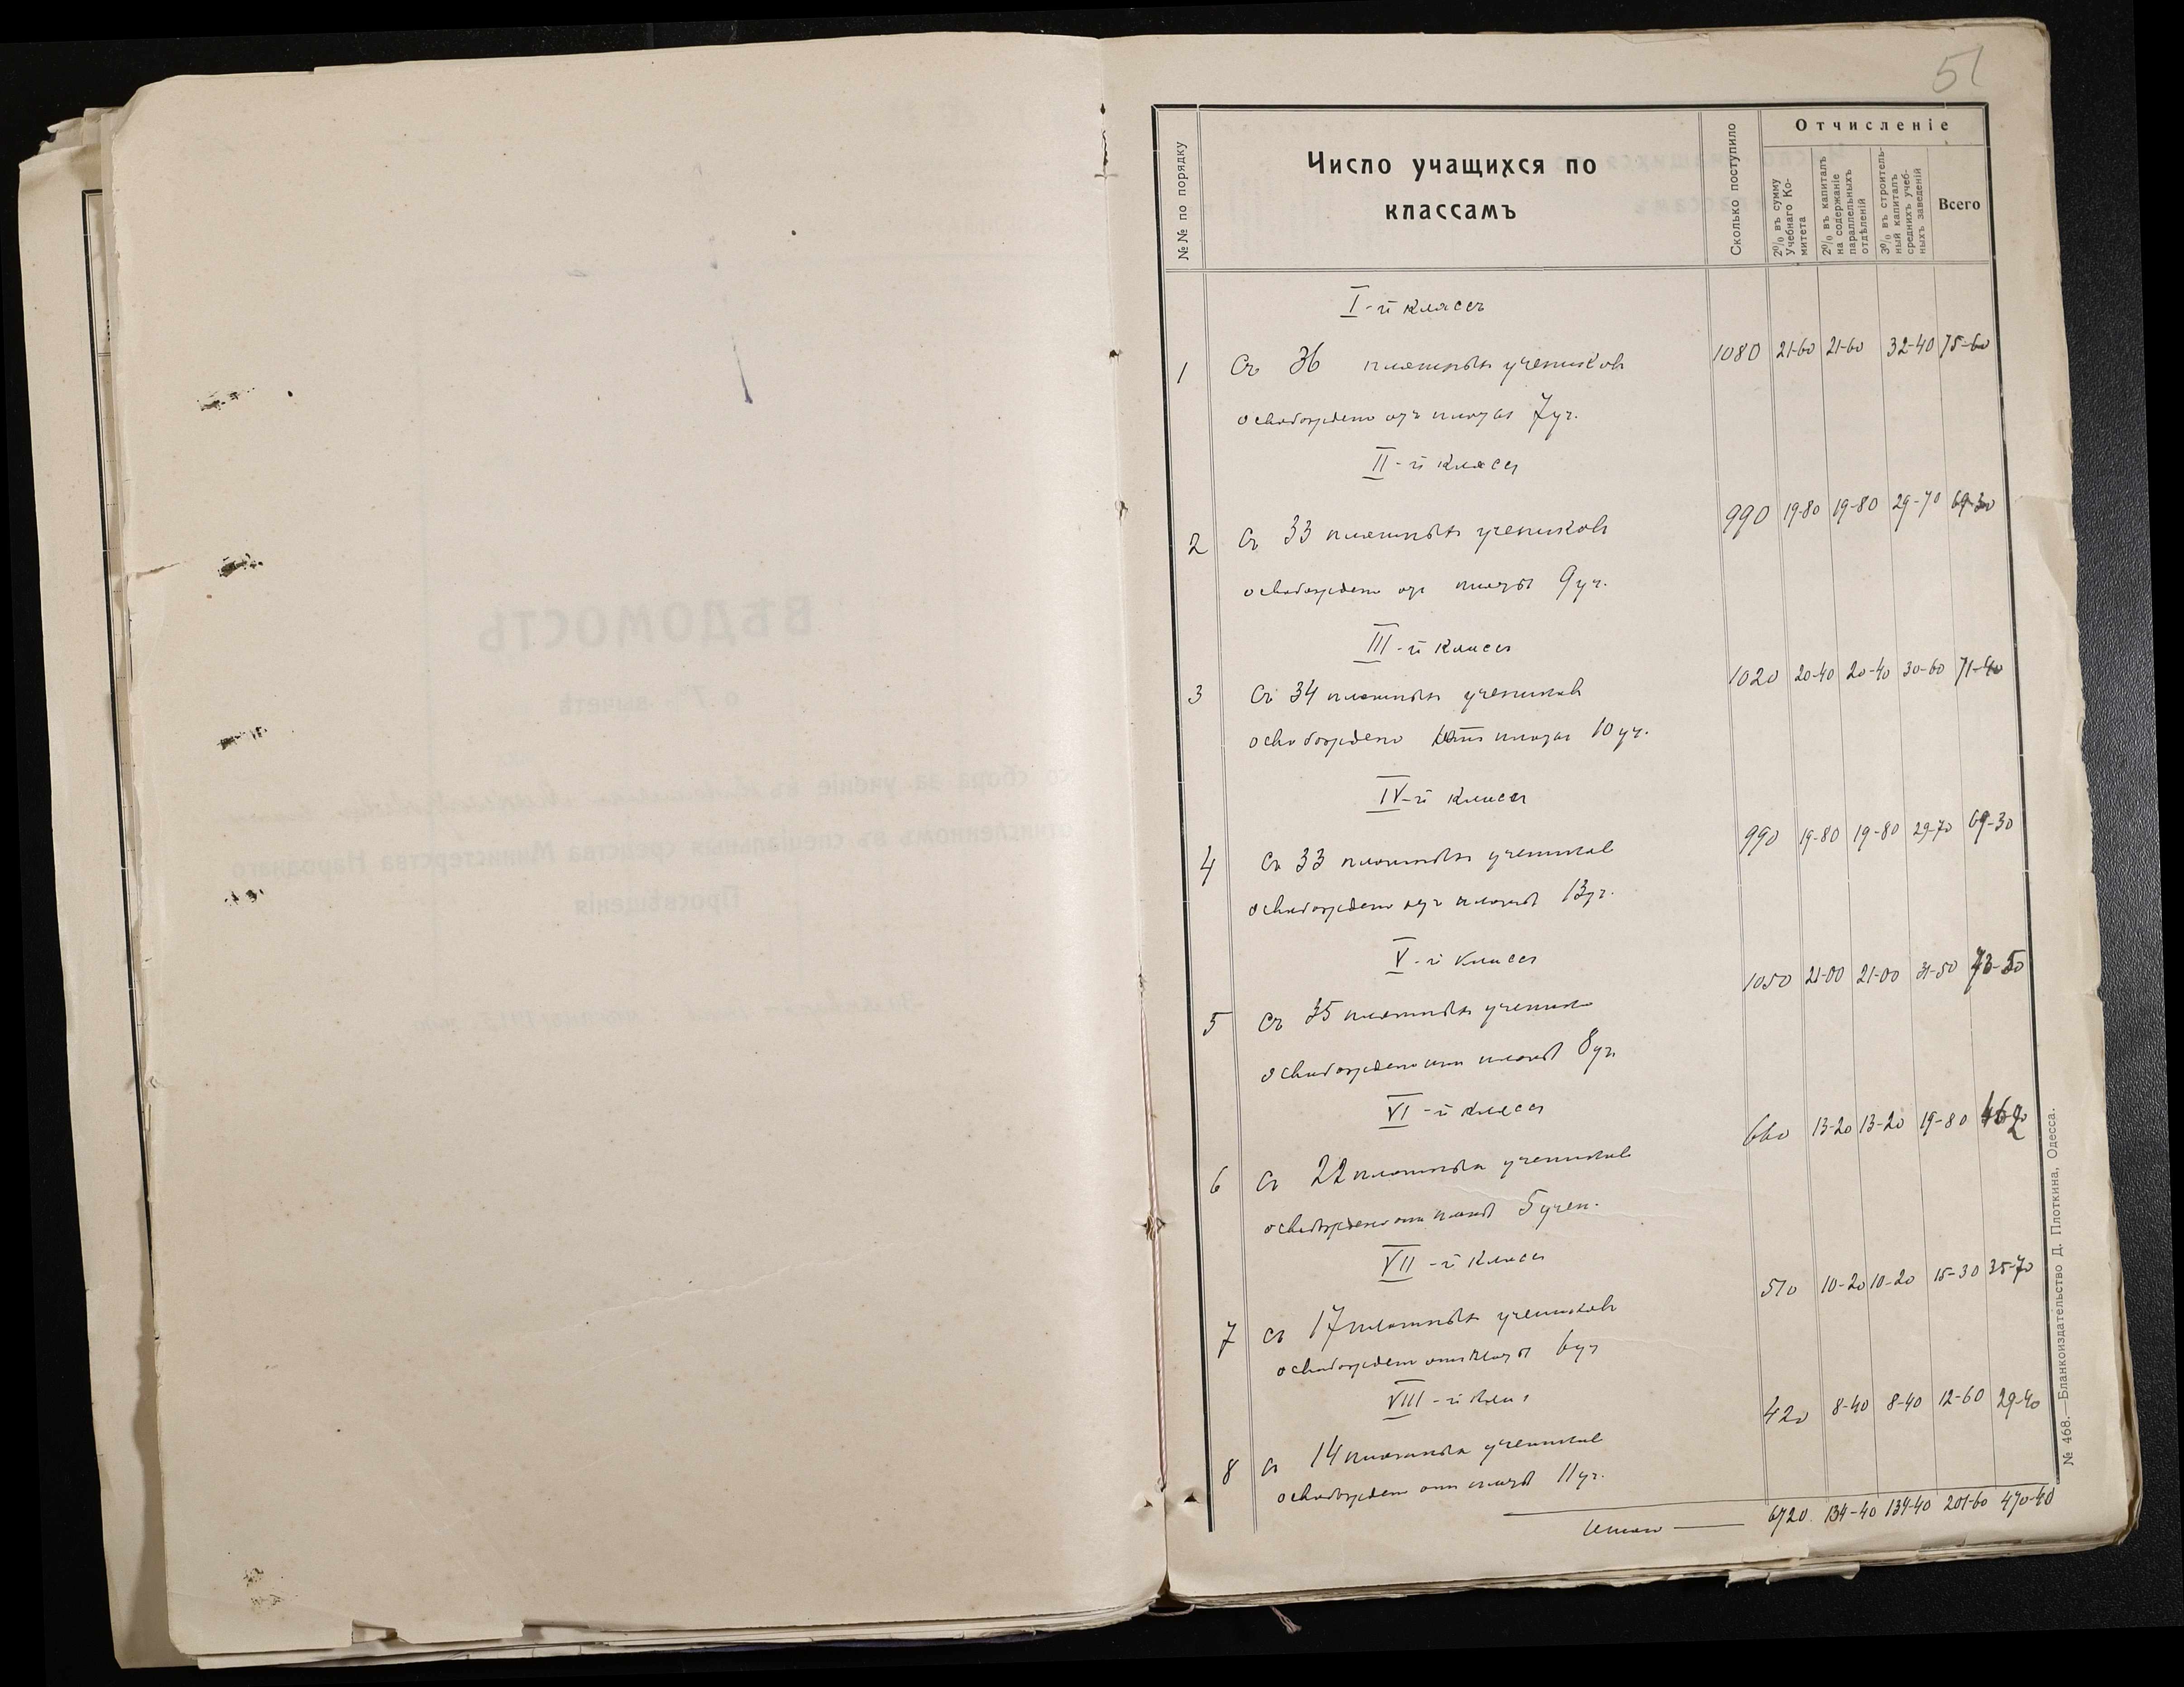 51
№№ по порядку
Число учащихся по
классамъ
Сколько поступило
Отчисленіе
2% въ сумму
Учебнаго Ко-
митета
2% въ капиталъ
на содержаніе
параллельныхъ
отдѣленій
3% въ строитель-
ный капиталъ
среднихъ учеб-
ныхъ заведеній
Всего
I-й классъ
1 Съ 36 платныхъ учениковъ 1080 21-60 21-60 32-40 75-60
освобождено отъ платы 7 уч.
II-й классъ
2 Съ 33 платныхъ учениковъ 990 19-80 19-80 29-70 69-30
освобождено отъ платы 9 уч.
III-й классъ
3 Съ 34 платныхъ учениковъ 1020 20-40 20-40 30-60 71-40
освобождено отъ платы 10 уч.
IV-й классъ
4 Съ 33 платныхъ учениковъ 990 19-80 19-80 29-70 69-30
освобождено отъ платы 13 уч.
V-й классъ
5 Съ 35 платныхъ учениковъ 1050 21-00 21-00 31-50 73-50
освобождено отъ платы 8 уч.
VI-й классъ
6 Съ 22 платныхъ учениковъ 660 13-20 13-20 19-80 46-20
освобождено отъ платы 5 учен.
VII-й классъ
7 Съ 17 платныхъ учениковъ 510 10-20 10-20 15-30 35-70
освобождено отъ платы 6 уч
VIII-й клас
8 Съ 14 платныхъ учениковъ 420 8-40 8-40 12-60 29-40
освобожден отъ платы 11 уч.
Итого 6720. 134-40 134-40 201-60 470-40
№ 468.—Бланкоиздательство Д. Плоткина, Одесса.